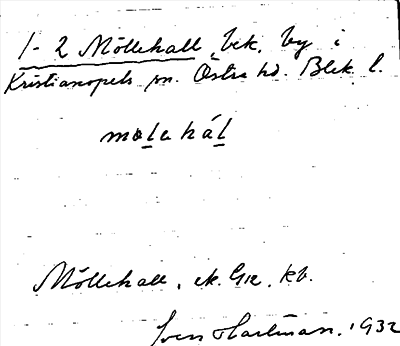 1-2 Möllehall, bek. by i
Kristianopels sn. Östra hd. Blek. l.
molehál
Möllehall, ek. Gre. kb.
Sven Hartman. 1932